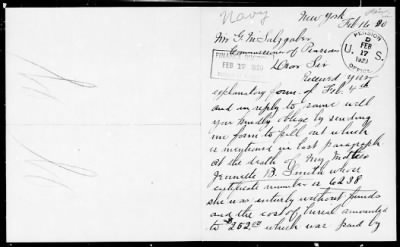 Navy
New York
Feb 16 20
Mr G. M. Saltzgaber
Commissioner of Pension
PENSION
FEB 17 1920
U. S.
OFFICE
FEB 17 1920
Dear Sir
Received your
explanatory form of Feb. 4th
and in reply to same will
you kindly oblige by sending
me form to fill out which
is mentioned in last paragraph
at the death of My Mother
B. Smith whose
certificate number is 6238
she was entirely without funds
and the cost of burial amounted
to $252.00 which was paid by